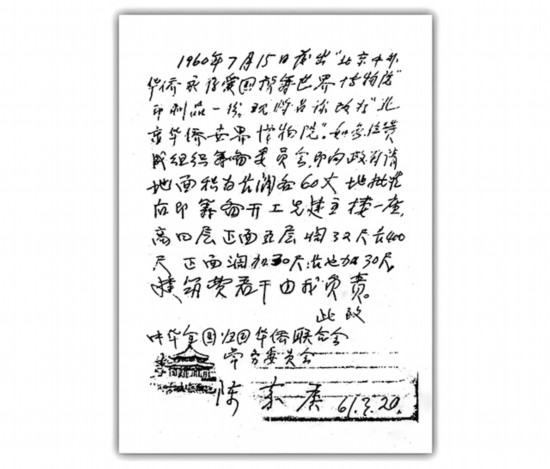 1960年7月15日 出“北京
华侨 爱国 世界博物院”
印刷品一份,现将名称改为“北
京华侨世界博物院”。如 赞
成组织筹备委员会,即向政府请
地面积为长阔各60丈 地批准
后即筹备开工先建主楼一座,
高四层正面五层阔32尺长400
尺 正面阔加30尺长也加30尺,
建筑费若干由我负责。
此致
中华全国归国华侨联合会
常务委员会
陈嘉庚 61.3.20.